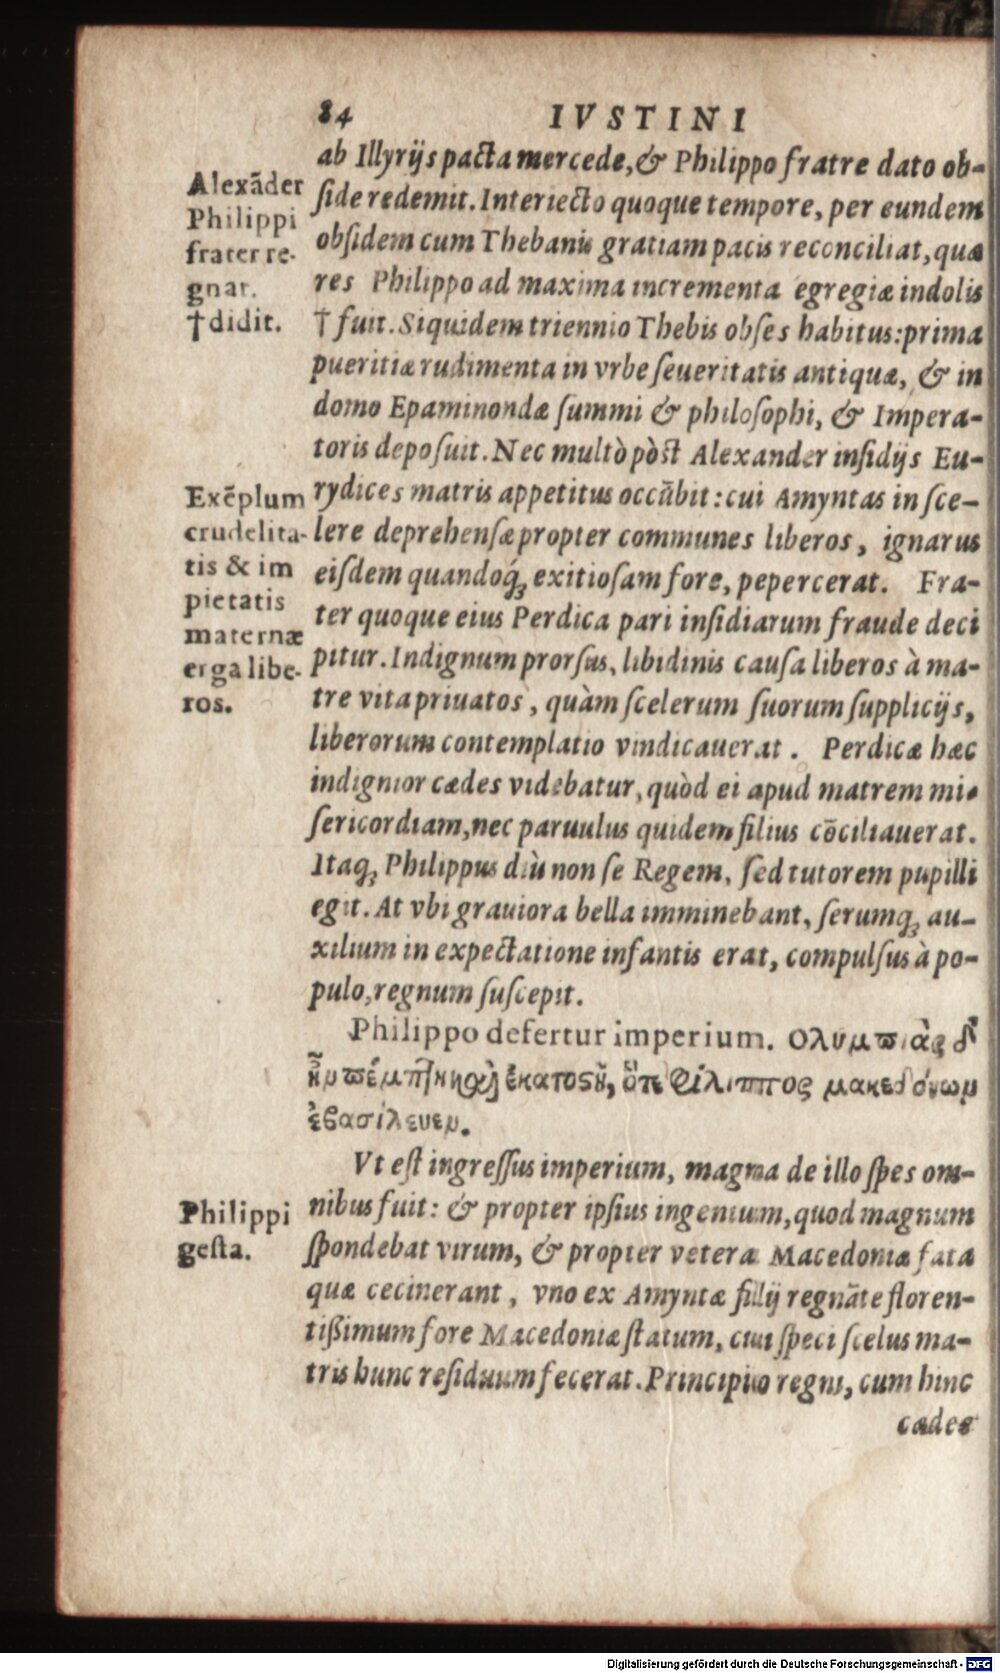 84 IVSTINI
ab Illyrijs pacta mercede, & Philippo fratre dato ob-
side redemit. Interiecto quoque tempore, per eundem
obsidem cum Thebanis gratiam pacis reconciliat, quæ
res Philippo ad maxima incrementa egregiæ indolis
† fuit. Siquidem triennio Thebis obses habitus: prima
pueritiæ rudimenta in vrbe seueritatis antiquæ, & in
domo Epaminondæ summi & philosophi, & Impera-
toris deposuit. Nec multò pòst Alexander insidijs Eu-
rydices matris appetitus occūbit: cui Amyntas in sce-
lere deprehensæ propter communes liberos, ignarus
eisdem quandoq́ꝫ exitiosam fore, pepercerat. Fra-
ter quoque eius Perdica pari insidiarum fraude deci
pitur. Indignum prorsus, libidinis causa liberos à ma-
tre vita priuatos, quàm scelerum suorum supplicijs,
liberorum contemplatio vindicauerat. Perdicæ hæc
indignior cædes videbatur, quòd ei apud matrem mi-
sericordiam, nec paruulus quidem filius cōciliauerat.
Itaqꝫ Philippus diù non se Regem, sed tutorem pupilli
egit. At vbi grauiora bella imminebant, serumqꝫ au-
xilium in expectatione infantis erat, compulsus à po-
pulo, regnum suscepit.
Philippo defertur imperium. Ολυμπιὰς δ'
ἦν πέμπτη καὶ ἑκατοςὴ, ὅτε Φίλιππος μακεδόνων
ἐβασίλευεν.
Vt est ingressus imperium, magna de illo spes om-
nibus fuit: & propter ipsius ingenium, quod magnum
spondebat virum, & propter vetera Macedoniæ fata
quæ cecinerant, vno ex Amyntæ filij regnāte floren-
tißimum fore Macedoniæ statum, cui spei scelus ma-
tris hunc residuum fecerat. Principio regni, cum hinc
cædes
Alexāder
Philippi
frater re-
gnat.
†didit.
Exēplum
crudelita-
tis & im
pietatis
maternæ
erga libe-
ros.
Philippi
gesta.
Digitalisierung gefördert durch die Deutsche Forschungsgemeinschaft - DFG